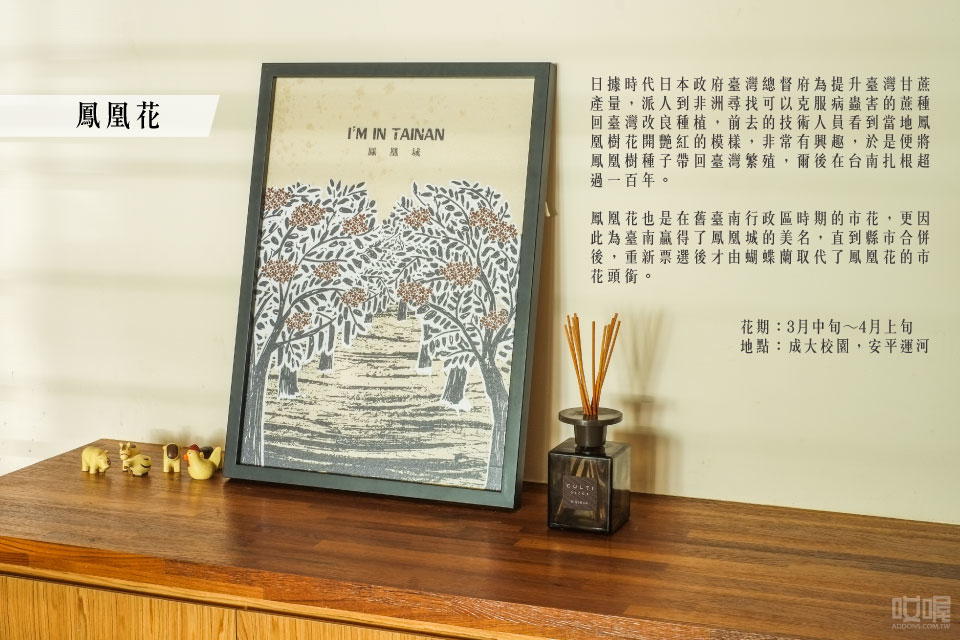 鳳凰花
I'M IN TAINAN
鳳凰城
日據時代日本政府臺灣總督府為提升臺灣甘蔗
產量，派人到非洲尋找可以克服病蟲害的蔗種
回臺灣改良種植，前去的技術人員看到當地鳳
凰樹花開艷紅的模樣，非常有興趣，於是便將
鳳凰樹種子帶回臺灣繁殖，爾後在台南扎根超
過一百年。
鳳凰花也是在舊臺南行政區時期的市花，更因
此為臺南贏得了鳳凰城的美名，直到縣市合併
後，重新票選後才由蝴蝶蘭取代了鳳凰花的市
花頭銜。
花期：3月中旬～4月上旬
地點：成大校園，安平運河
CULTI
哎喔
ADDONS.COM.TW